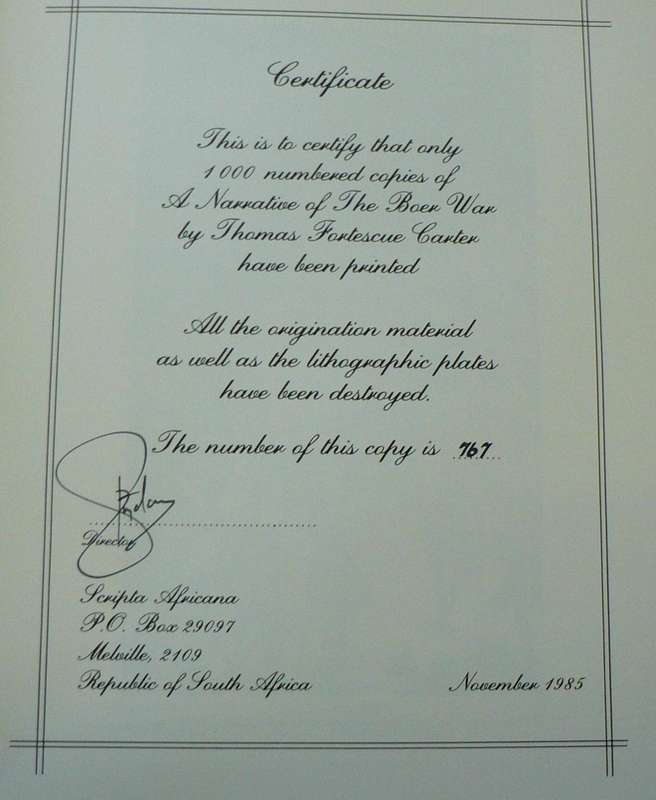 Certificate
This is to certify that only
1 000 numbered copies of
A Narrative of The Boer War
by Thomas Fortescue Carter
have been printed
All the origination material
as well as the lithographic plates
have been destroyed.
The number of this copy is 767
Director
Scripta Africana
P.O. Box 29097
Melville, 2109
Republic of South Africa
November 1985